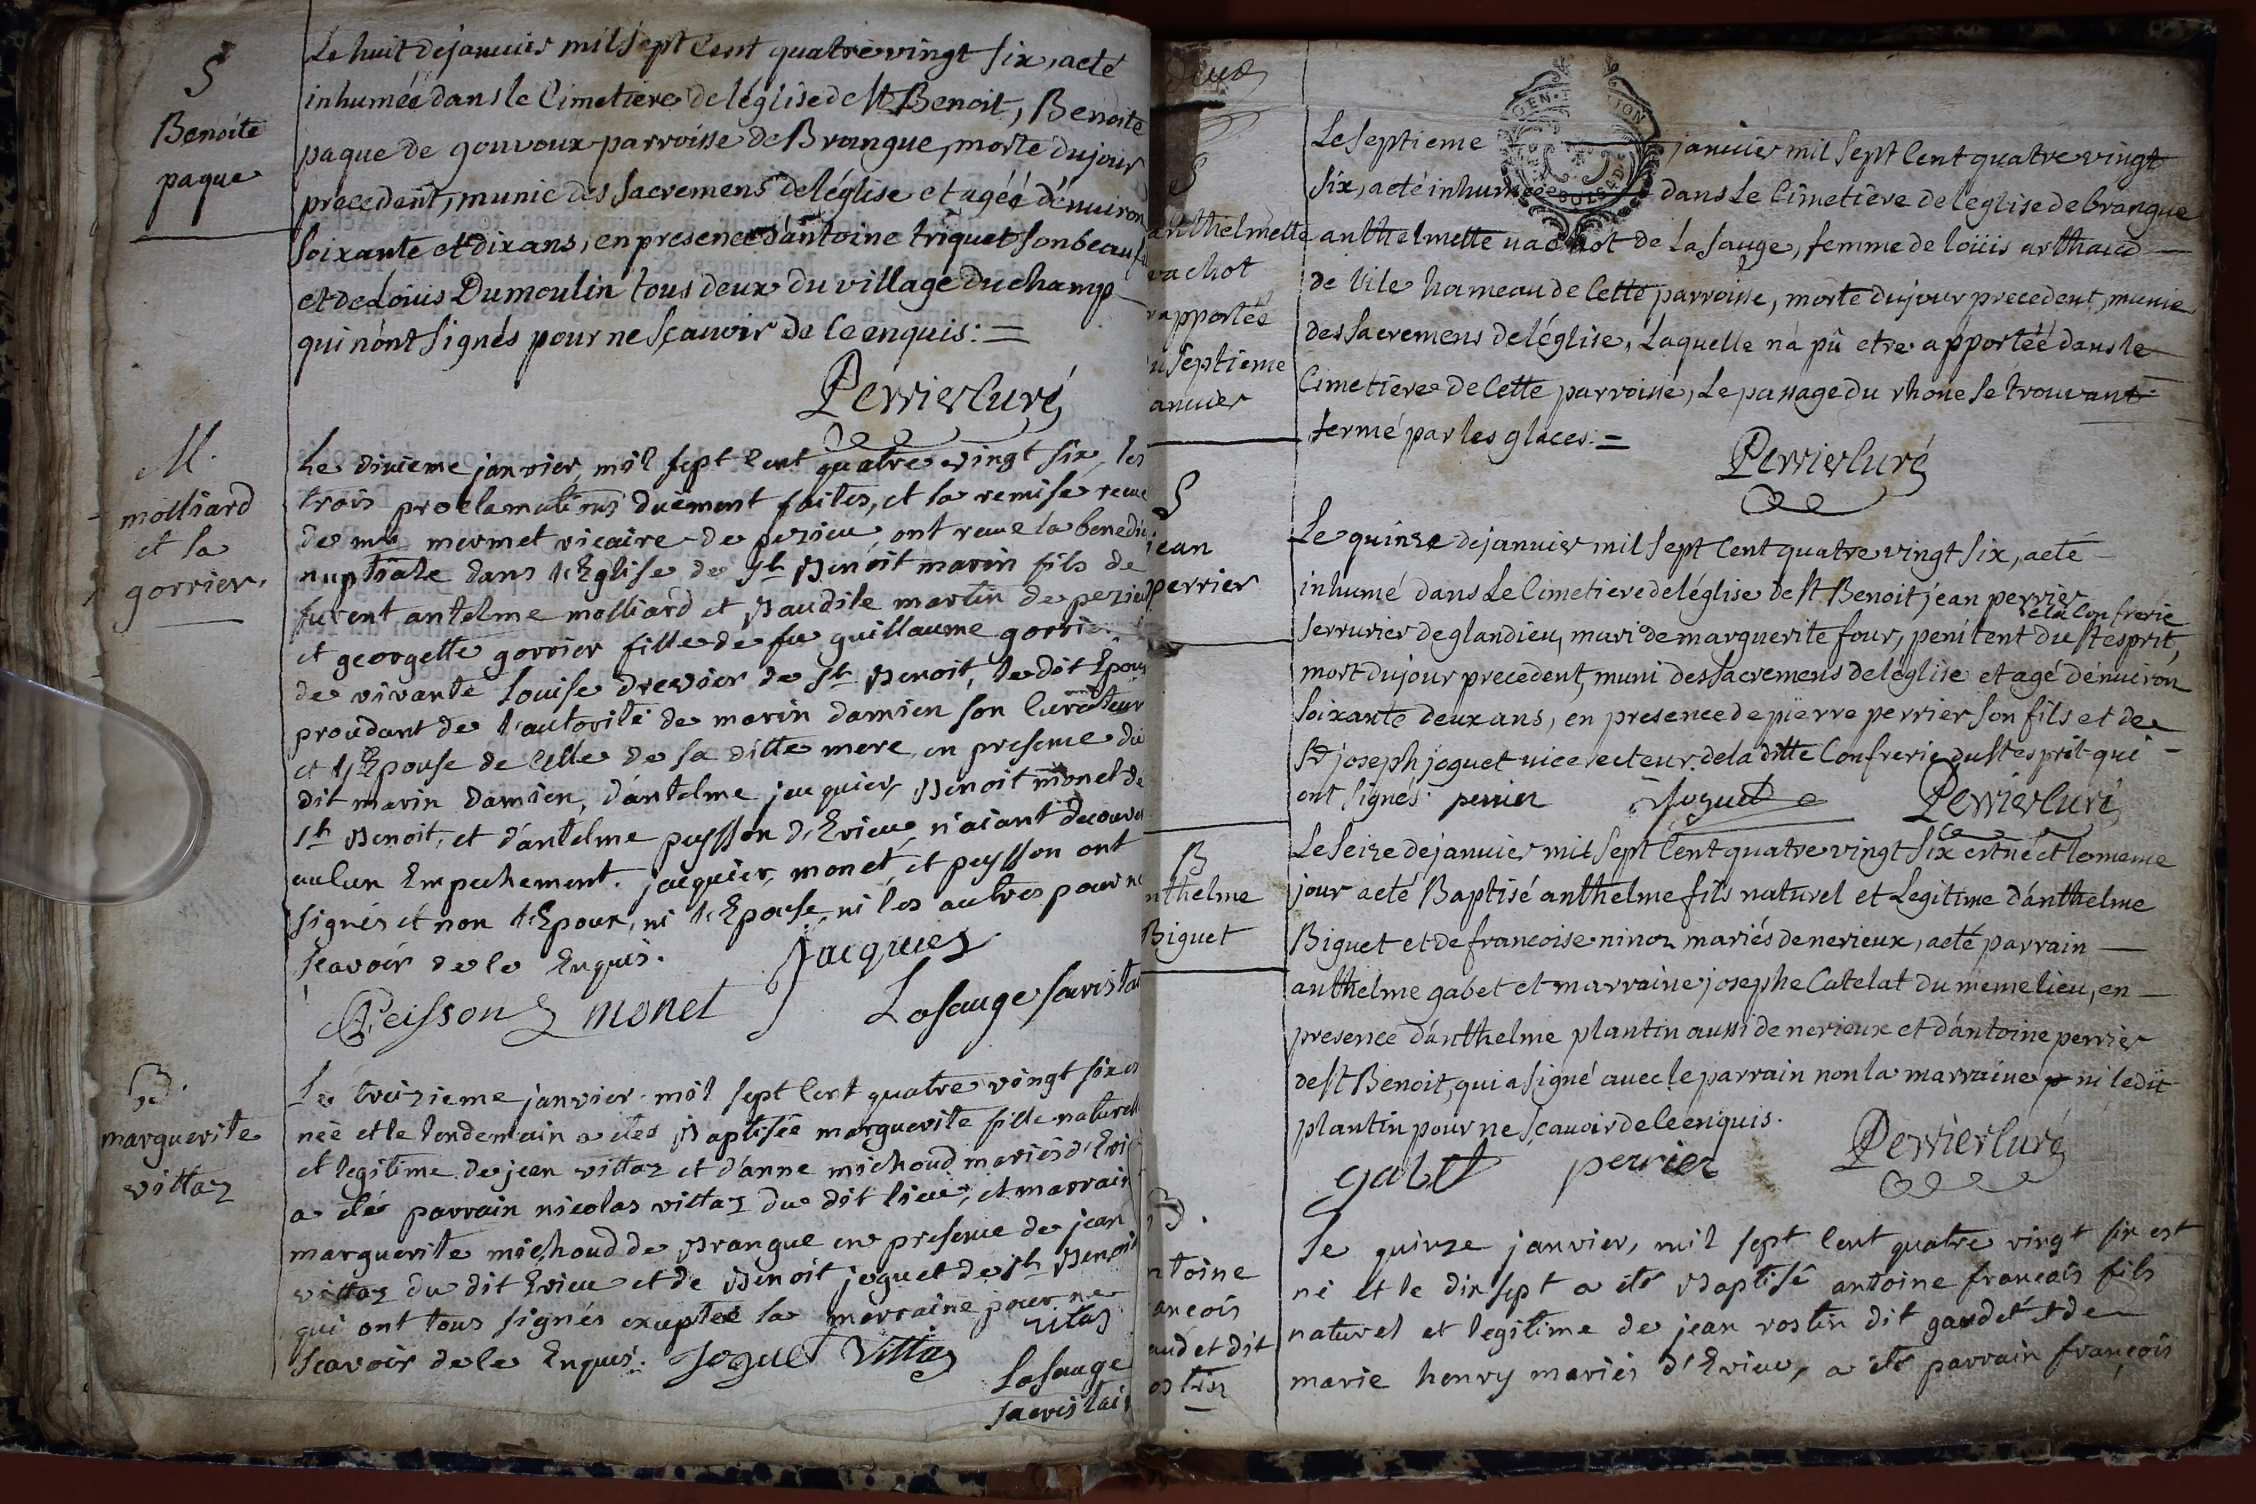 S
Benoite
paque
Le huit de janvier mil sept cent quatre vingt six, a eté
inhumée dans le Cimetiere de léglise de St Benoit, Benoite
paque de gouvoux parroisse de Brangue, morte du jour
precedent, munie des sacremens de léglise et agéé d'énuiron
soixante et dix ans, en presence d'antoine triquet son beau
et de Loüis Dumoulin tous deux du village du champ
qui n'ont signés pour ne sçauoir de ce enquis. =
Perrier Curé
M.
molliard
et la
gorrier.
Le dixieme janvier, mil sept cent quatre vingt six, les
trois proclamations duement faites, et la remise recue
de mr mermet vicaire de pezieu, ont recue la benedi
nuptiale dans l'Eglise de st Benoit marin fils de
furent antelme molliard et Baudile martin de pezieu
et georgette gorrier fille de fu guillaume gorrier
de vivante Louise drevier de st Benoit, le dit Epoux
procedant de l'autorité de marin damien son curateur
et l'Epouse de celle de sa ditte mere, en presence du
dit marin damien, d'antelme jacquier, Benoit monet de
st Benoit, et d'antelme peysson d'Evieu, n'aiant decouve
aucun Empechement. jacquier, monet, et peysson ont
signés et non l'Epoux, ni l'Epouse, ni les autres pour ne
scavoir de ce Enquis.
Jacquier
Peisson monet Lasauge sacristai
B.
marguerite
vittoz
Le treizieme janvier mil sept cent quatre vingt six es
née et le lendemain a etes Baptisée marguerite fille naturell
et legitime de jean vittoz et d'anne michoud mariés d'Evi
a été parrain nicolas vittoz du dit lieu, et marrain
marguerite michoud de Brangue en presence de jean
vittoz du dit Evieu et de Benoit joguet de st Benoit
qui ont tous signés exeptee la marraine pour ne
scavoir de ce Enquis. Joguet Vittoz vitoz
Lasauge
sacristai
deux
S
anthelmette
vachot
rapportéé
u septieme
anuier
Le septieme janvier mil sept cent quatre vingt
six, a eté inhumée dans Le Cimetiere de léglise de brangue
anthelmette vachot de La sauge, femme de loüis arthaud
de l'ile hameau de Cette parroisse, morte du jour precedent, munie
des sacremens de léglise, Laquelle n'a pû etre apportéé dans le
Cimetiere de Cette parroisse, Le passage du rhone se trouvant
fermé par les glaces. =
Perrier Curé
S
jean
perrier
Le quinze de janvier mil sept cent quatre vingt six, a eté
inhumé dans Le Cimetiere de léglise de St Benoit jéan perrier
serrurier de glandieu, mari de marguerite four, penitent de la Confrerie du St esprit,
mort du jour precedent, muni des sacremens de léglise et agé d'énuiron
soixante deux ans, en presence de pierre perrier son fils et de
Sr joseph joguet vice recteur de la ditte Confrerie du St esprit qui
ont signés. perrier Joguet Perrier Curé
B
nthelme
Biguet
Le seize de janvier mil sept cent quatre vingt six est né et le meme
jour a eté Baptisé anthelme fils naturel et Legitime d'anthelme
Biguet et de francoise ninoz mariés de nerieux, a eté parrain
anthelme gabet et marraine josephe Catelat du meme lieu, en
presence d'anthelme plantin aussi de nerieux et d'antoine perrier
de St Benoit, qui a signé avec le parrain non la marraine ni le dit
plantin pour ne sçauoir de ce enquis.
gabet perrier Perrier Curé
B.
ntoine
ancois
audet dit
ostin
Le quinze janvier, mil sept cent quatre vingt six est
né et le dix sept a été Baptisé antoine francois fils
naturel et legitime de jean rostin dit gaudet et de
marie henry mariés d'Evieu, a été parrain françois